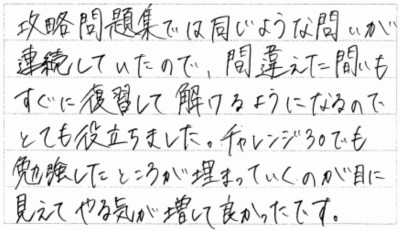 攻略問題集では同じような問いが
連続していたので、間違えた問いも
すぐに復習して解けるようになるので
とても役立ちました。チャレンジ30でも
勉強したところが埋まっていくのが目に
見えてやる気が増して良かったです。